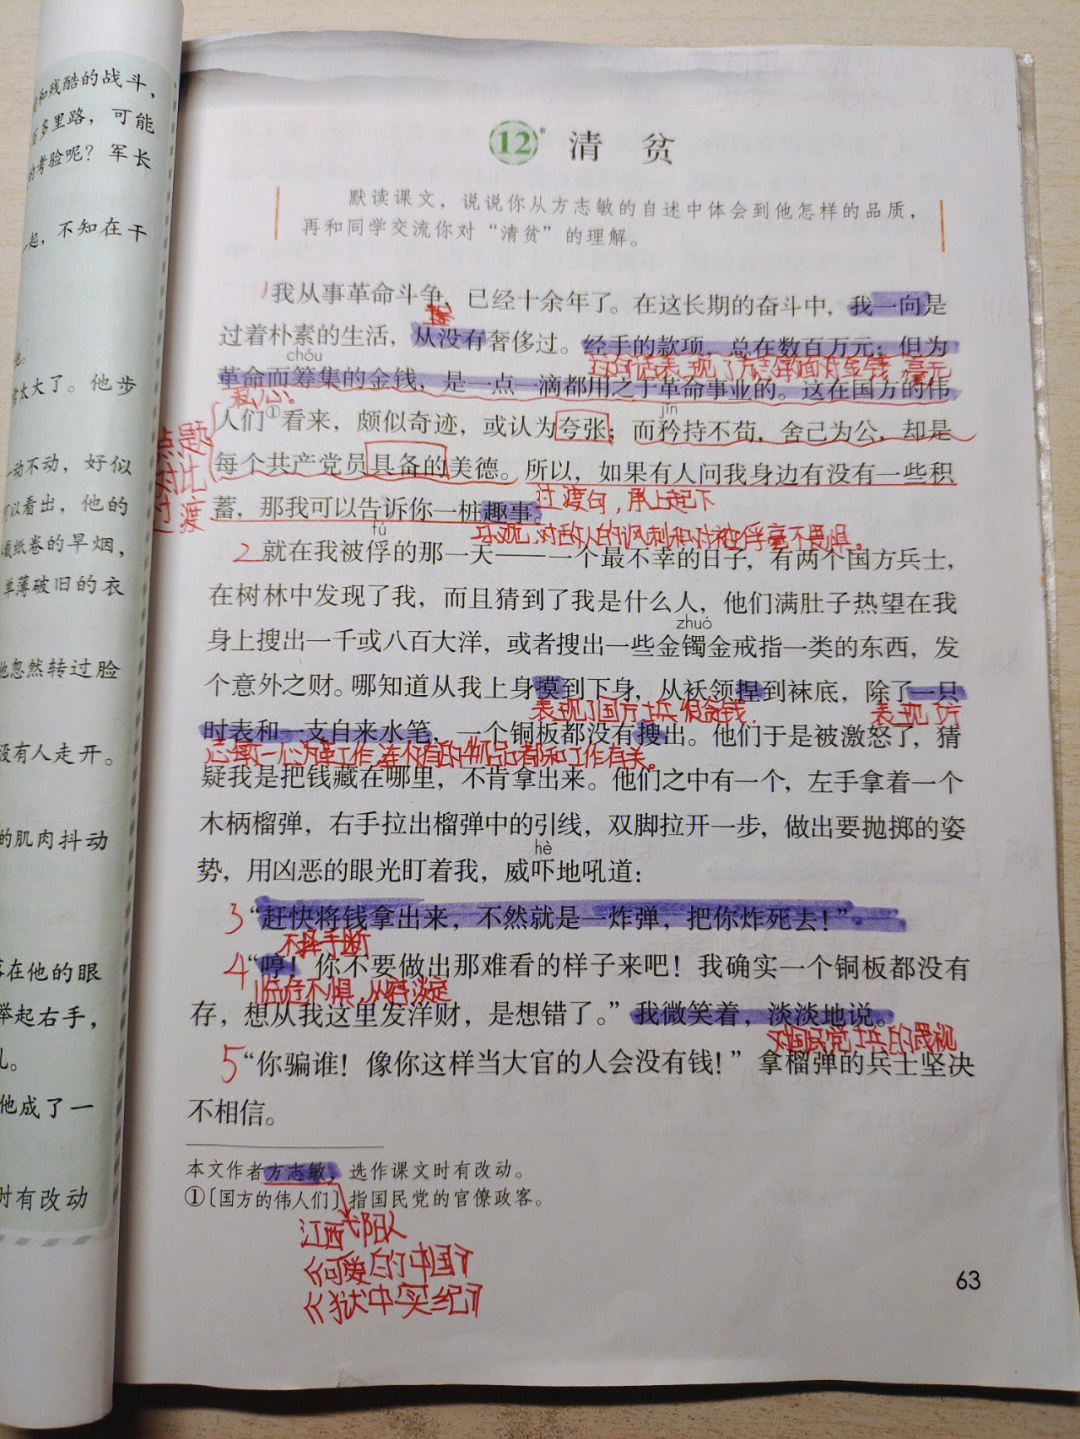 和残酷的战斗，
多里路，可能
考验呢？军长
起，不知在干
太大了。他步
一动不动，好似
以看出，他的
纸卷的早烟，
单薄破旧的衣
他忽然转过脸
没有人走开。
的肌肉抖动
在他的眼
举起右手，
礼。
他成了一
时有改动
12* 清贫
默读课文，说说你从方志敏的自述中体会到他怎样的品质，
再和同学交流你对“清贫”的理解。
1我从事革命斗争，已经十余年了。在这长期的奋斗中，我一向是
过着朴素的生活，从没有奢侈过。经手的款项，总在数百万元；但为
chóu
这句话表现了方志敏面对金钱毫无
革命而筹集的金钱，是一点一滴都用之于革命事业的。这在国方的伟
私心。
人们①看来，颇似奇迹，或认为夸张；而矜持不苟，舍己为公，却是
jīn
点题
对比
过渡
每个共产党员具备的美德。所以，如果有人问我身边有没有一些积
过渡句，承上起下
蓄，那我可以告诉你一桩趣事。
乐观，对敌人的讽刺和对被俘毫不畏惧。
fú
2就在我被俘的那一天——一个最不幸的日子，有两个国方兵士，
在树林中发现了我，而且猜到了我是什么人，他们满肚子热望在我
zhuó
身上搜出一千或八百大洋，或者搜出一些金镯金戒指一类的东西，发
个意外之财。哪知道从我上身摸到下身，从袄领捏到袜底，除了一只
表现了国方士兵很贪钱。
表现了方
时表和一支自来水笔，一个铜板都没有搜出。他们于是被激怒了，猜
志敏一心为革工作，连仅有的物品也都和工作有关。
疑我是把钱藏在哪里，不肯拿出来。他们之中有一个，左手拿着一个
木柄榴弹，右手拉出榴弹中的引线，双脚拉开一步，做出要抛掷的姿
hè
势，用凶恶的眼光盯着我，威吓地吼道：
3“赶快将钱拿出来，不然就是一炸弹，把你炸死去！”
不择手断
4“哼！你不要做出那难看的样子来吧！我确实一个铜板都没有
临危不惧，从容淡定
存，想从我这里发洋财，是想错了。”我微笑着，淡淡地说。
对国民党士兵的蔑视
5“你骗谁！像你这样当大官的人会没有钱！”拿榴弹的兵士坚决
不相信。
本文作者方志敏，选作课文时有改动。
①〔国方的伟人们〕指国民党的官僚政客。
江西弋阳人
《可爱的中国》
《狱中实纪》
63